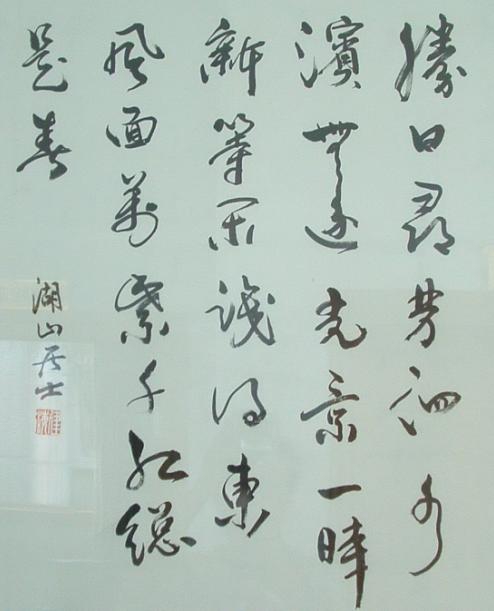 勝日尋芳泗水
濱無邊光景一時
新等閒識得東
風面萬紫千紅總
是春
湖山居士